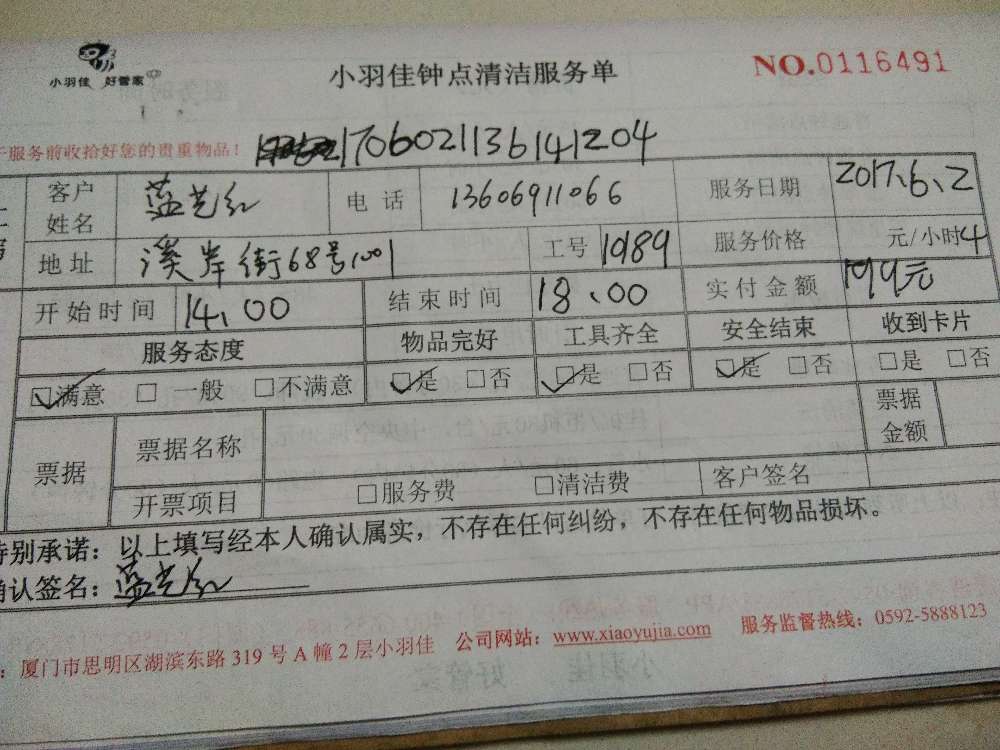 小羽佳 好管家
小羽佳钟点清洁服务单
NO.0116491
于服务前收拾好您的贵重物品！
1706021136141204
客户姓名 蓝艺红 电话 13606911066 服务日期 2017、6、2
地址 溪岸街68号1001 工号 10189 服务价格 元/小时4
开始时间 14、00 结束时间 18、00 实付金额 199元
服务态度 物品完好 工具齐全 安全结束 收到卡片
☑满意 □一般 □不满意 ☑是 □否 ☑是 □否 ☑是 □否 □是 □否
票据 票据名称 票据金额
开票项目 □服务费 □清洁费 客户签名
特别承诺：以上填写经本人确认属实，不存在任何纠纷，不存在任何物品损坏。
确认签名：蓝艺红
：厦门市思明区湖滨东路 319 号 A 幢 2 层小羽佳 公司网站：www.xiaoyujia.com 服务监督热线：0592-5888123